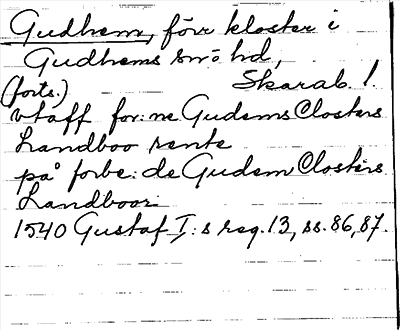 Gudhem, förr kloster i
Gudhems snö hd,
(forts.) Skarab. l.
vtaff for:ne Gudems Closters
Landboo rente
på forbe:de Gudem Closters
Landboor
1540 Gustaf I:s reg. 13, ss. 86, 87.